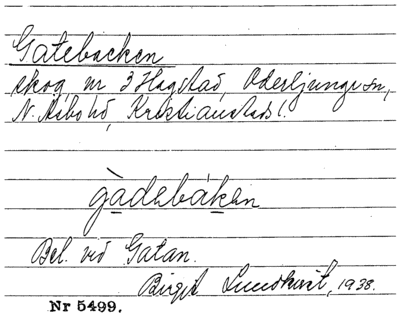 Gatebacken
skog, nr 3 Hagstad, Oderljunga sn,
N. Åsbo hd, Kristianstads l.
gàdəbákən
Bel. vid Gatan.
Birgit Lundkvist, 1938.
Nr 5499.